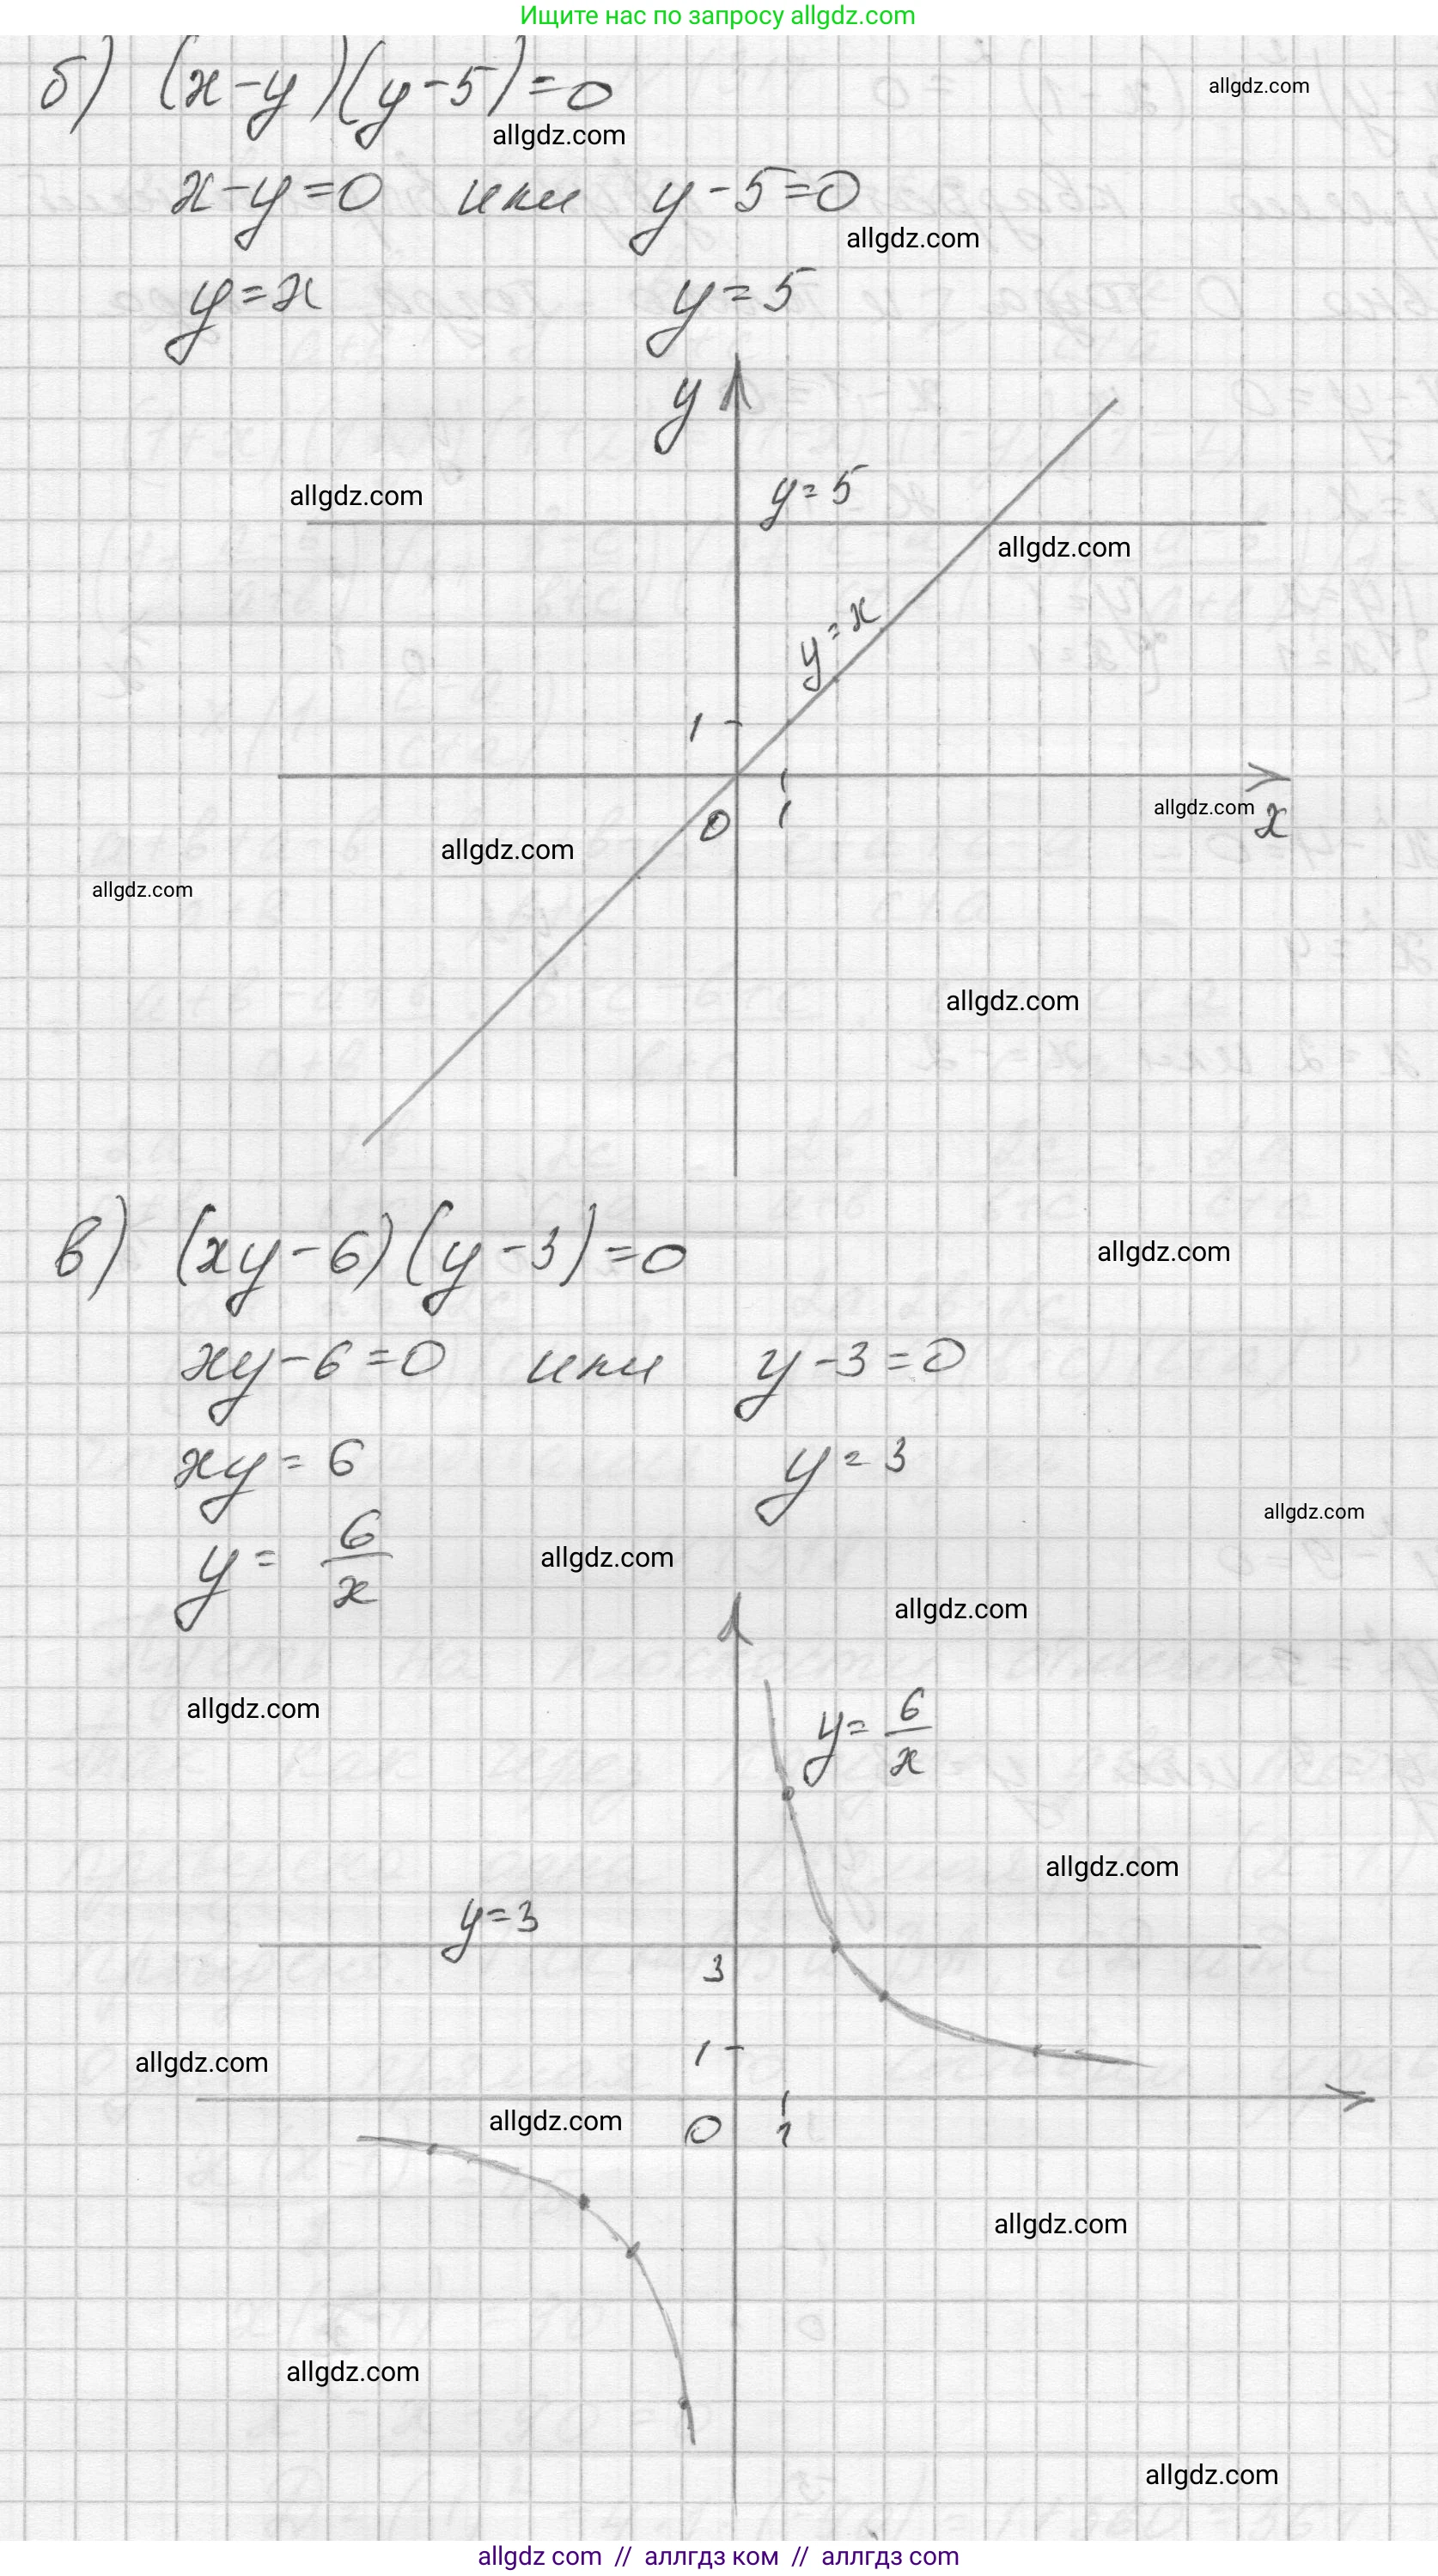 Ищите нас по запросу allgdz.com
б) (x-y)(y-5)=0
allgdz.com
allgdz.com
x-y=0 или y-5=0
allgdz.com
y=x y=5
y
y=5
allgdz.com
allgdz.com
y=x
1
0 1
allgdz.com x
allgdz.com
allgdz.com
allgdz.com
в) (xy-6)(y-3)=0
allgdz.com
xy-6=0 или y-3=0
xy=6 y=3
allgdz.com
y= 6/x
allgdz.com
allgdz.com
allgdz.com
y= 6/x
allgdz.com
y=3
3
1
allgdz.com
allgdz.com
0 1
allgdz.com
allgdz.com
allgdz.com
allgdz com // аллгдз ком // аллгдз com